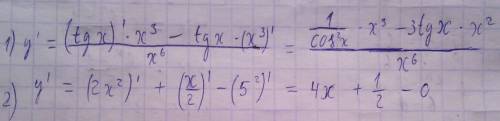 1) y' = \frac{(tg x)' \cdot x^3 - tg x \cdot (x^3)'}{x^6} = \frac{\frac{1}{cos^2 x} \cdot x^3 - 3 tg x \cdot x^2}{x^6}
2) y' = (2x^2)' + (\frac{x}{2})' - (5^2)' = 4x + \frac{1}{2} - 0